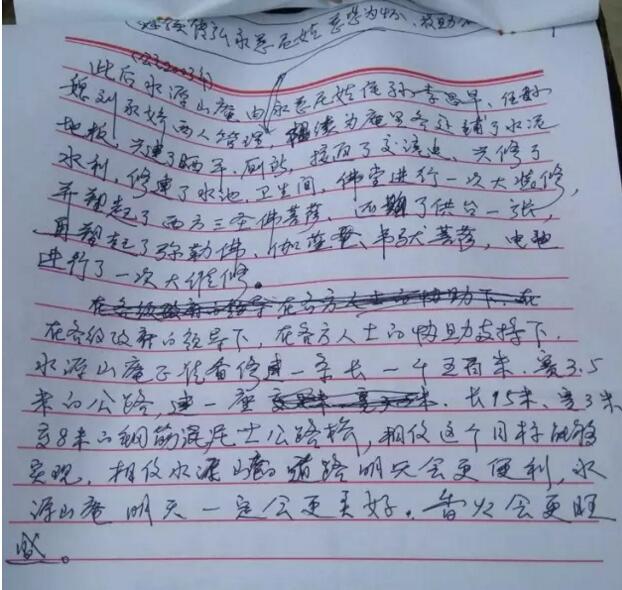 永意尼姑慈悲为怀
(2003年)
此后水源山庵由永意尼姑侄孙李昌早、侄媳
魏刘永娇两人管理,继续为庵里各处铺了水泥
地板,兴建了晒平、厕所,接回了交流电、兴修了
水利,修建了水池、卫生间,佛堂进行一次大装修,
并塑起了西方三圣佛菩萨、了供台一张,
再塑起了弥勒佛、伽蓝爷、韦驮菩萨,电
进行了一次大维修。
在各级政府的领导在各方人士的协助下、在
在各级政府的领导下,在各方人士的协助支持下.
水源山庵正准备修建一条长一千五百米.宽3.5
米的公路,建一座米.长15米、宽3米
高8米的钢筋混泥土公路桥,相信这个目标能够
实现,相信水源山庵的道路明天会更便利,水
源山庵明天一定会更美好.香火会更旺
盛。